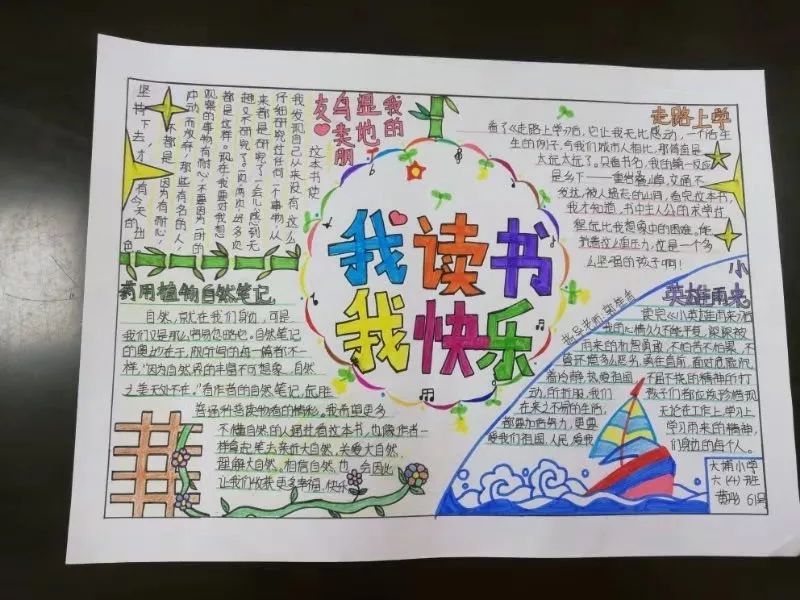 我的
湿地
鸟类朋
友
这本书使
我发现自己从来没有这么
仔细研究过任何一个事物，从
来都是研究了一会儿感到无
趣又不研究了，一两次这多次
都是这样。现在我要对我想
观察的事物有耐心，不要因为一时的
冲动而放弃，那些有名的人，
不都是因为有耐心，
坚持下去，才有今天出色
走路上学
看了《走路上学》后，它让我无比感动，一个活生
生的例子，令我们城市人相比，那简直是
太远太远了。只看书名，我的第一反应
是乡下——重岩叠嶂，交通不
发达，被人遗忘的山洞，看完这本书，
我才知道，书中主人公的求学过
程远比我想象中的困难。作
么坚强的孩子啊！
我读书
我快乐
药用植物自然笔记
自然，就在我们身边，可是
我们又是那么容易忽略它。自然笔记
的奥妙在于，
样，"因为自然界的丰富不可想象，自然
之美无处不在。"看作者的自然笔记，就
不懂自然的人通过看这本书，也像作者一
样拿起笔去亲近大自然，关爱大自然，
理解大自然。相信自然，也会因此
让我们收获更多幸福，快乐
小
英雄雨来
指导老师：
读完《小英雄雨来》后
我的心情久久不能平复，深深被
雨来的机智勇敢、不怕苦不怕累，不
管环境多么恶劣，勇往直前，面对危险沉
着冷静，热爱祖国，不屈不挠的精神所打
动，所折服，我们孩子们都应该珍惜现
在来之不易的生活，无论在工作上，学习上
都要加倍努力，更要学习雨来的精神，
爱我们祖国，人民，爱我们身边的每个人。
大埔小学
六（4）班
黄彤 61号